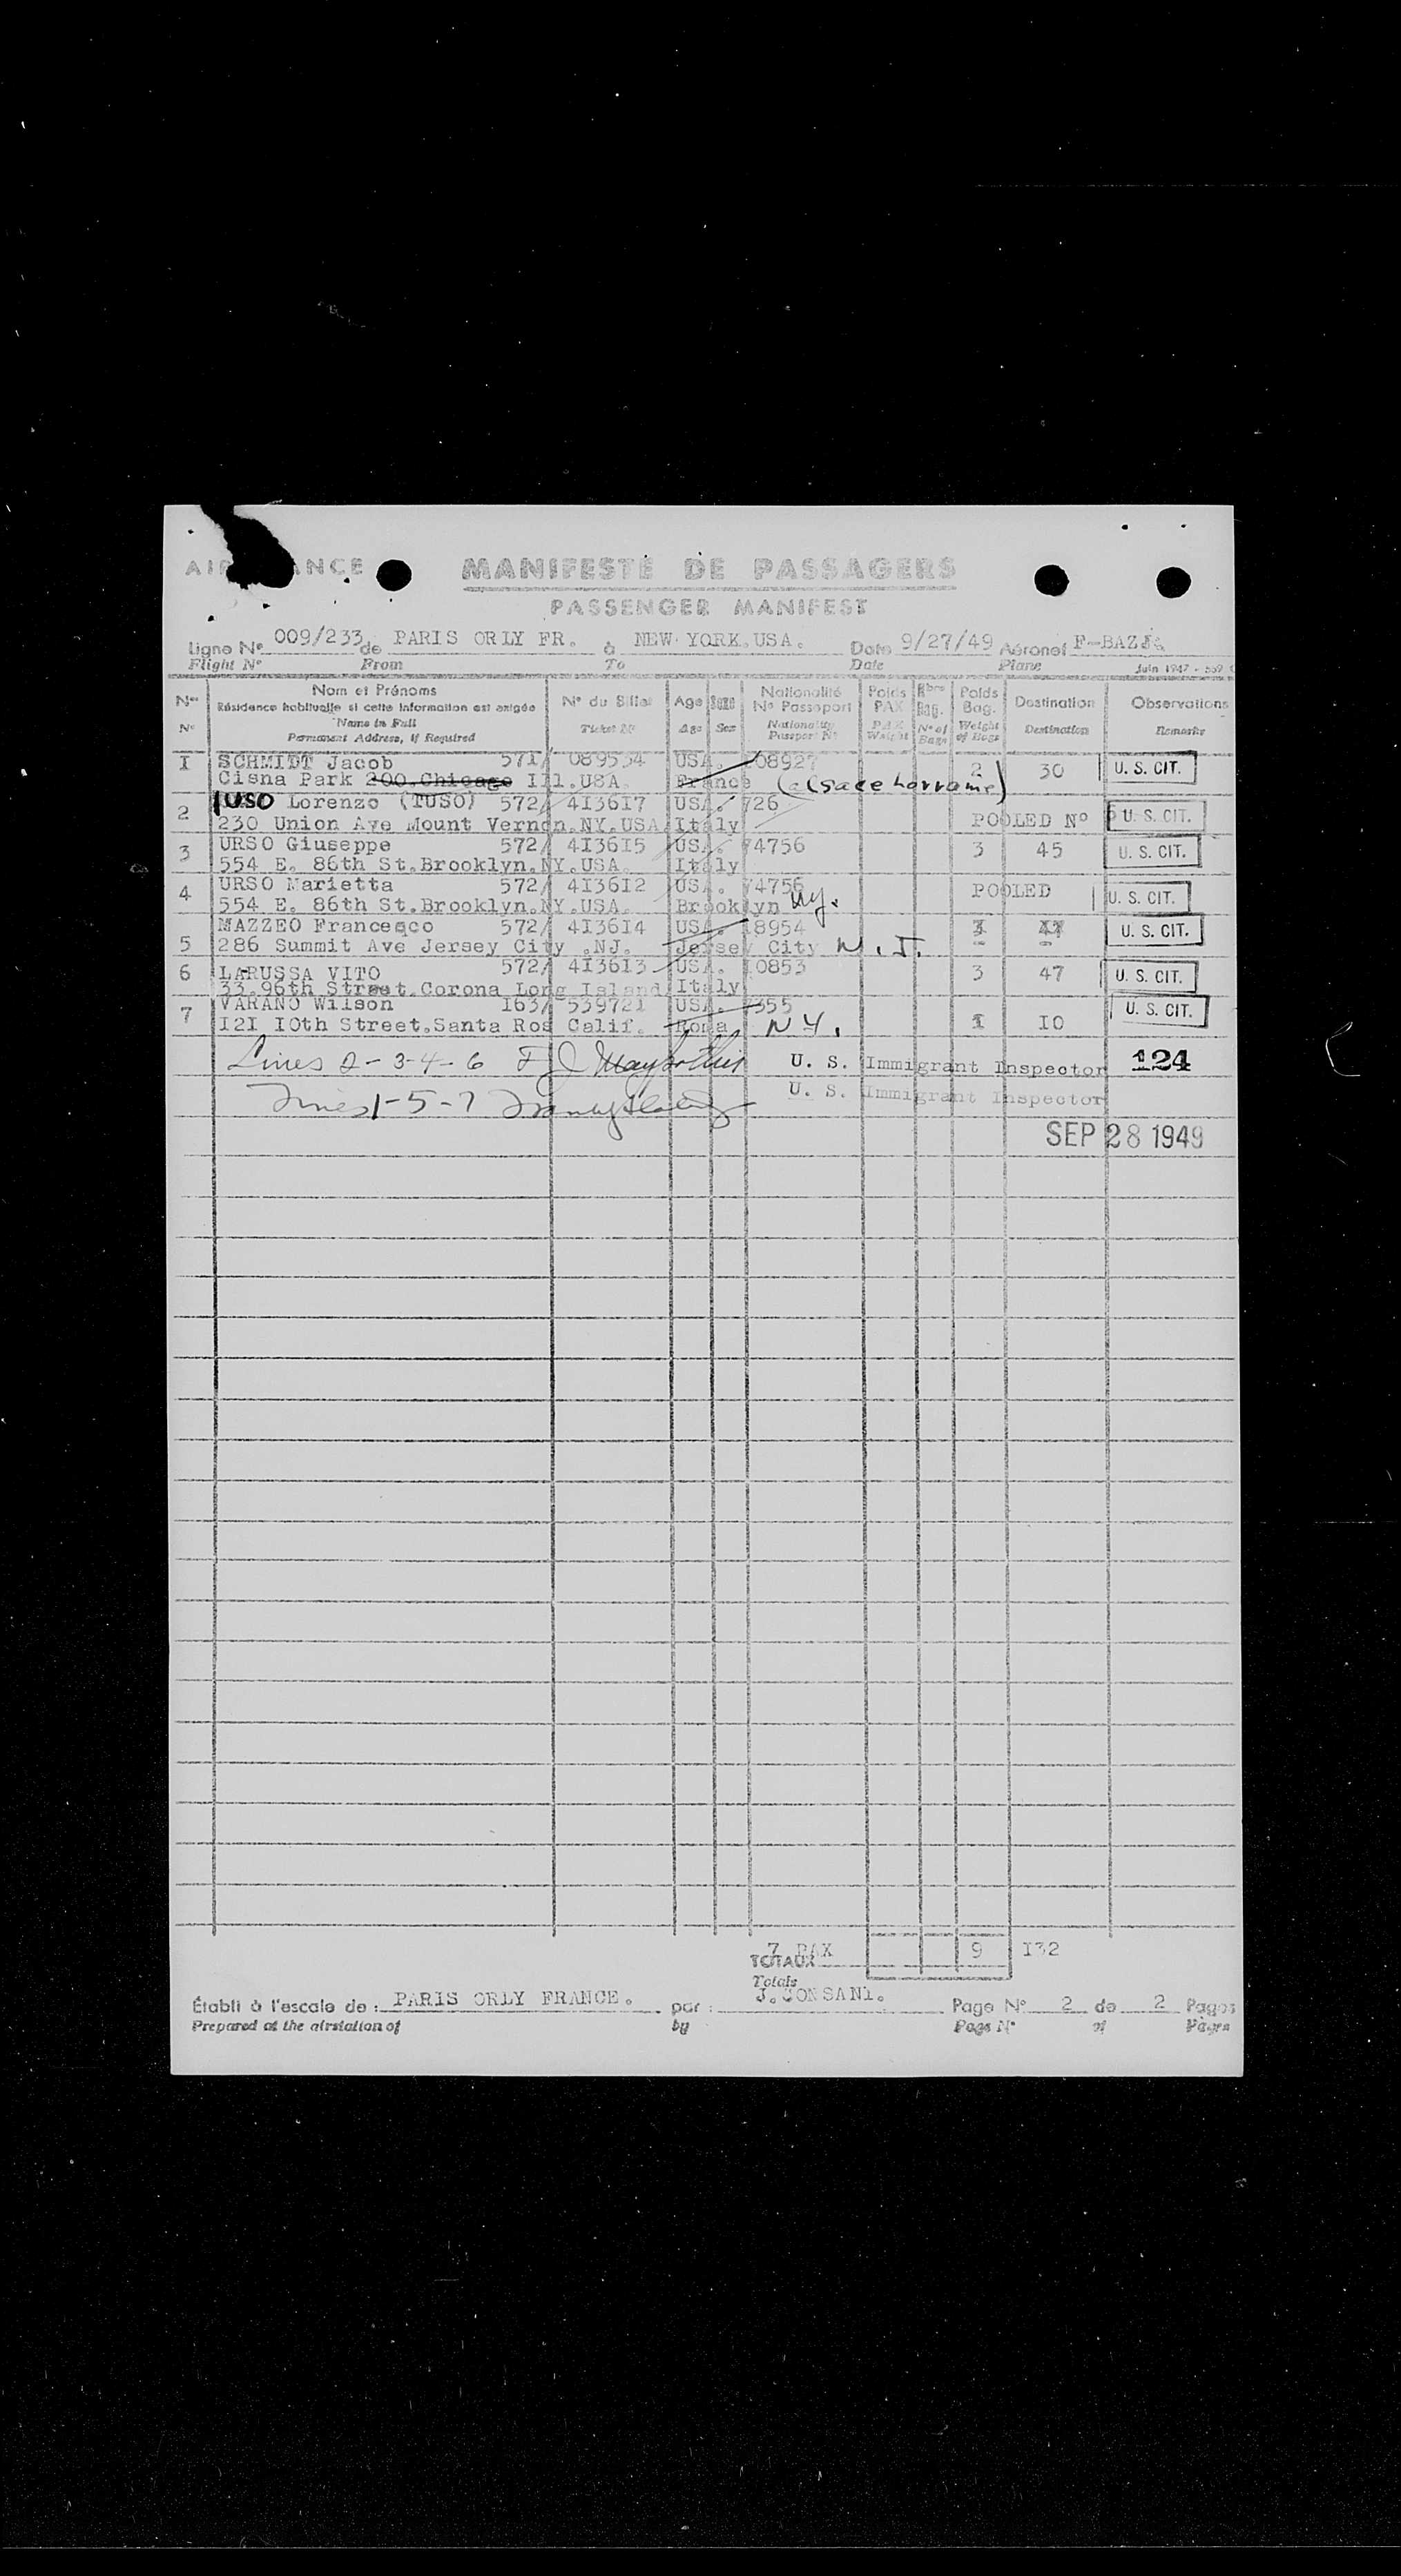 MANIFESTE DE PASSAGERS
PASSENGER MANIFEST
Ligne No 009/233 de PARIS ORLY FR. à NEW YORK.USA. Date 9/27/49 Aéronef
Flight No From To Date Plane Juin 1947 -
Nos Nom et Prénoms No du Billet Age Sexe Nationalité Poids Nbre Poids Destination Observations
Résidence habituelle si cette information est exigée No Passeport PAX Bag. Bag.
No Name in Full Ticket No Age Sex Nationality PAX No of Weight Destination Remarks
Permanent Address, if Required Passport No Weight Bags of Bags
I SCHMIDT Jacob 571/ 089534 USA. 08927 2 30 U. S. CIT.
Cisna Park 200.Chicago Ill.USA. France (alsace Lorraine)
2 IUSO Lorenzo (TUSO) 572/ 4I36I7 USA. 726 U. S. CIT.
230 Union Ave Mount Vernon.NY.USA Italy POOLED No
3 URSO Giuseppe 572/ 4I36I5 USA. 74756 3 45 U. S. CIT.
554 E. 86th St.Brooklyn.NY.USA. Italy
4 URSO Marietta 572/ 4I36I2 USA. 74756 POOLED U. S. CIT.
554 E. 86th St.Brooklyn.NY.USA. Brooklyn NY.
MAZZEO Francesco 572/ 4I36I4 USA. 18954 U. S. CIT.
5 286 Summit Ave Jersey City .NJ. Jersey City N.J.
6 LARUSSA VITO 572/ 4I36I3 USA. 10853 3 47 U. S. CIT.
33.96th Street.Corona Long Island Italy
7 VARANO Wilson I63/ 539721 USA. 7355 1 IO U. S. CIT.
I2I IOth Street.Santa Ros Calif. Roma NY.
Lines 2-3-4-6 U. S. Immigrant Inspector 124
Lines 1-5-7 U. S. Immigrant Inspector
SEP 28 1949
7 PAX 9 I32
TOTAUX
Totals
Établi à l'escale de : PARIS ORLY FRANCE. par : J.CONSANI. Page No 2 de 2 Pages
Prepared at the airstation of by Page No of Pages